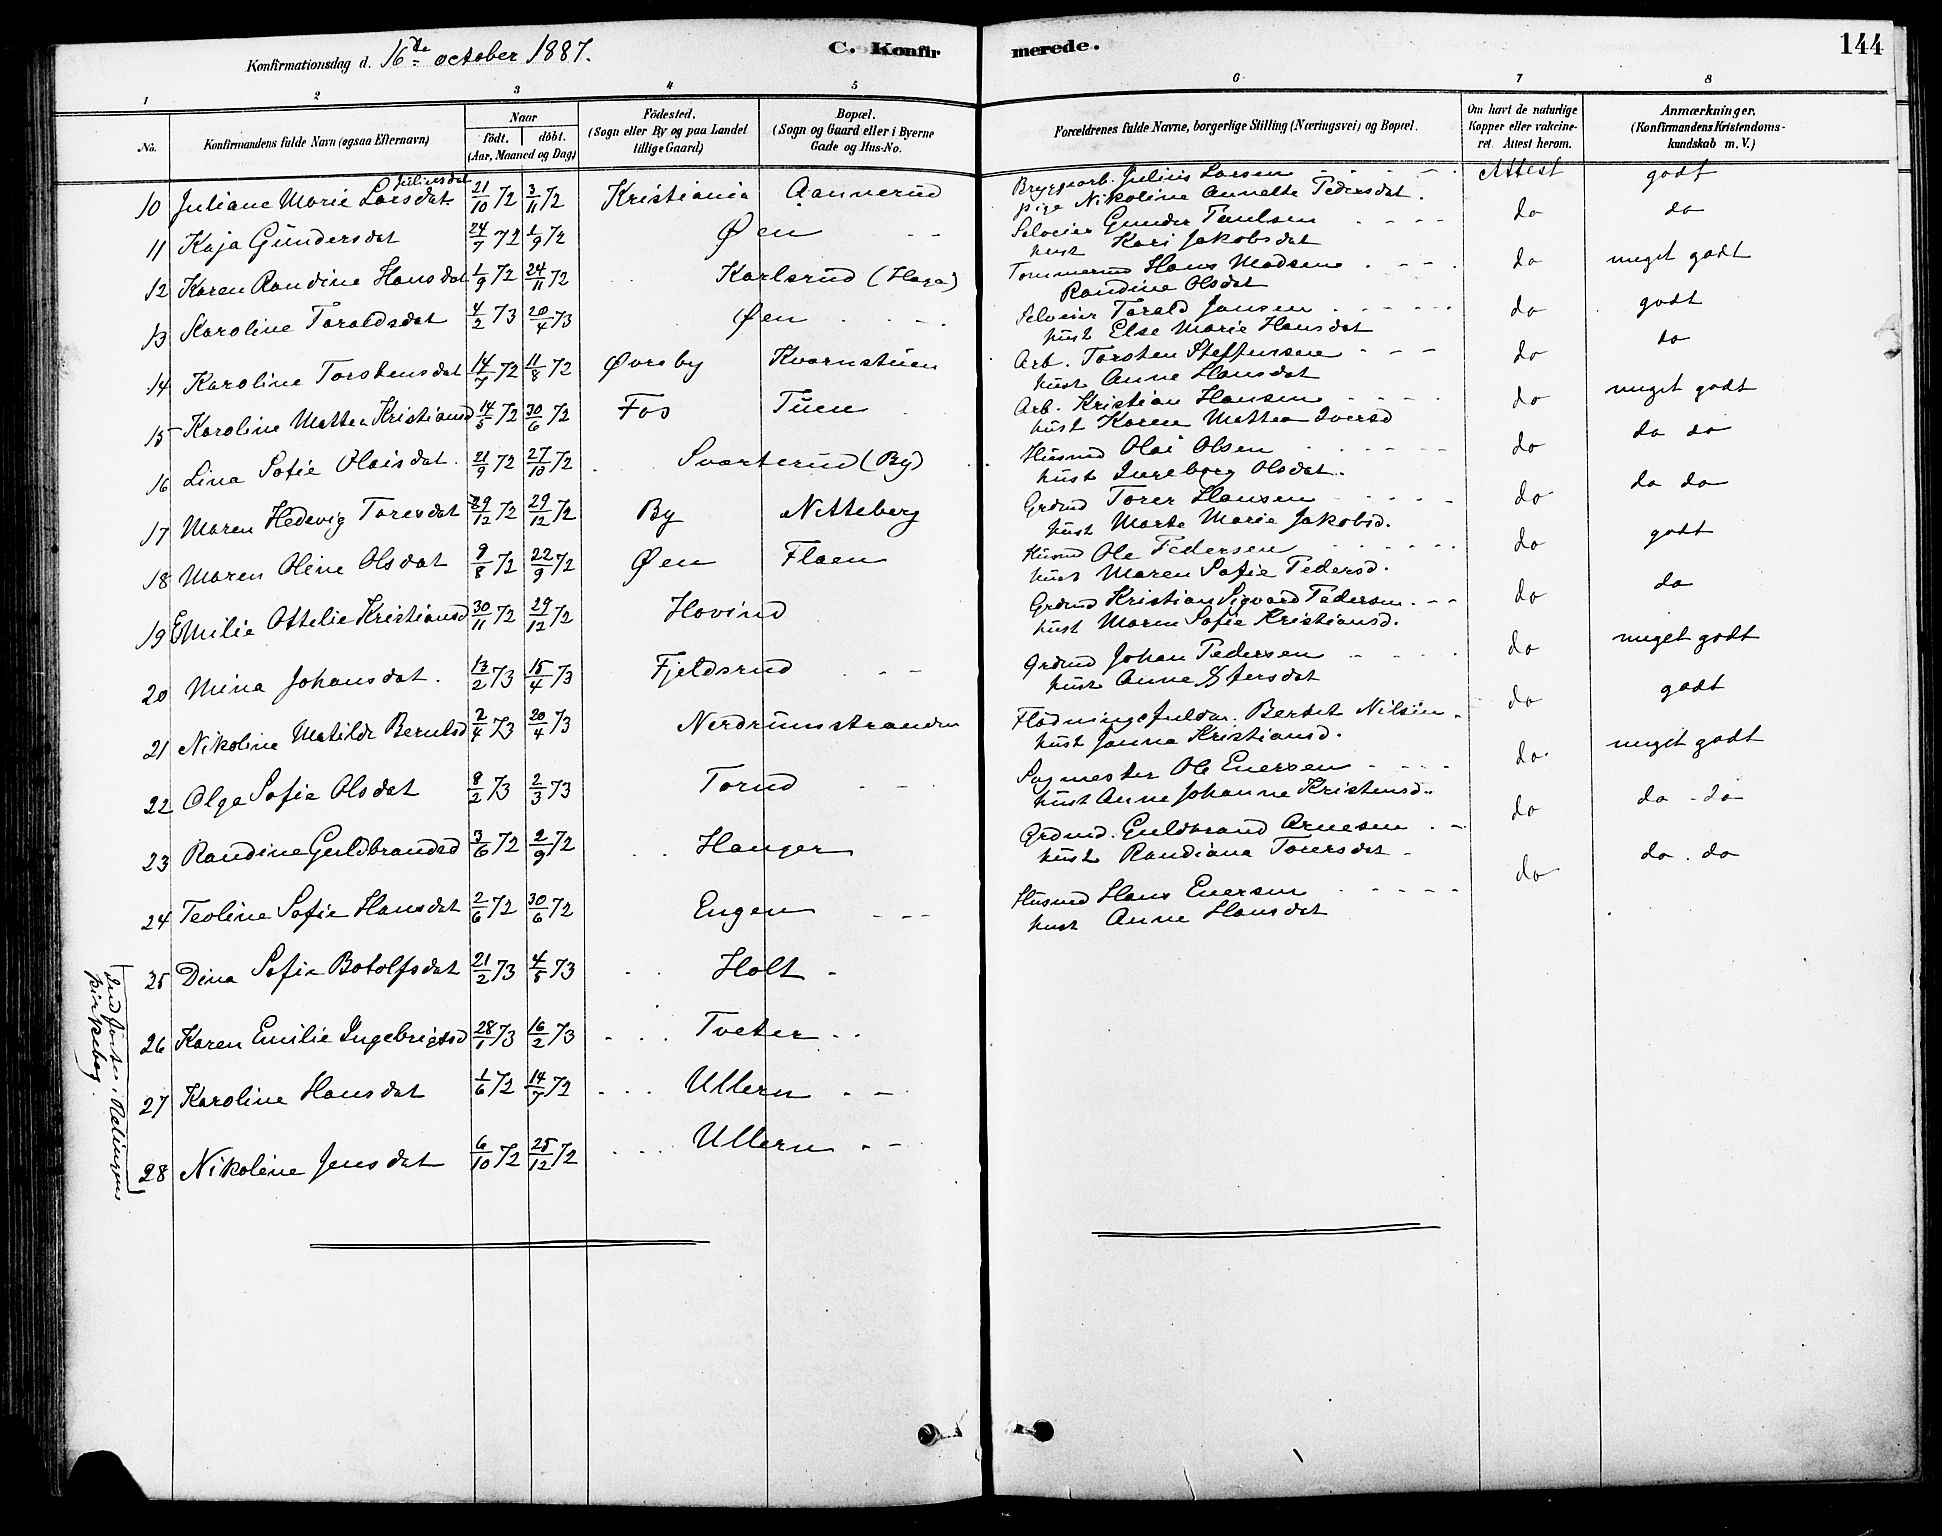 Konfirmationsdag d. 16de october 1887.
C. Konfirmerede.
144
1 2 3 4 5 6 7 8
No.
Konfirmandens fulde Navn (ogsaa Efternavn)
Naar
födt. döbt.
(Aar, Maaned og Dag)
Födested.
(Sogn eller By og paa Landet
tillige Gaard)
Bopæl.
(Sogn og Gaard eller i Byerne
Gade og Hus-No.
Forældrenes fulde Navne, borgerlige Stilling (Næringsvei) og Bopæl.
Om havt de naturlige
Kopper eller vakcine-
ret. Attest herom.
Anmærkninger,
(Konfirmandens Kristendoms-
kundskab m. V.)
Juliusdat
10 Juliane Marie Larsdat 21/10 72 3/11 72 Kristiania Aannerud Bryggearb. Julius Larsen Attest godt
pige Nikoline Annette Pedersdat.
11 Kaja Gundersdat 24/7 72 1/9 72 Øen Selveier Gunder Paulsen do do
hust Kari Jakobsdat
12 Karen Randine Hansdat 1/9 72 24/11 72 Karlsrud (Haga) Tommermd Hans Madsen do meget godt
Randine Olsdat
13 Karoline Taraldsdat 4/2 73 20/4 73 Øen Selveier Tarald Jansen do godt
hust Else Marie Hansdat
14 Karoline Torstensdat 14/7 72 11/8 72 Øvreby Kvernstuen Arb. Torsten Steffensen do do
hust Anne Hansdat
15 Karoline Mattea Kristiansd 14/5 72 30/6 72 Fos Tuen Arb. Kristian Hansen do meget godt
hust Karen Mattea Iversd
16 Lina Sofie Olaisdat 21/9 72 27/10 72 Svarterud (By) Husmd Olai Olsen do do do
hust Ingeborg Olsdat.
17 Maren Hedevig Toresdat 29/12 72 29/12 72 By Nitteberg Grdmd Torer Hansen do do do
hust Marte Marie Jakobsd.
18 Maren Oline Olsdat 9/8 72 22/9 72 Øen Flaen Husmd Ole Pedersen do godt
hust Maren Sofie Pedersd.
19 Emilie Ottelie Kristiansd 30/11 72 29/12 72 Hovind Grdmd Kristian Sigvard Pedersen do do
hust Maren Sofie Kristiansd.
20 Mina Johansdat. 13/2 73 15/4 73 Fjeldsrud Grdmd Johan Pedersen do meget godt
hust Anne
21 Nikoline Matilde Berntsd 2/4 73 20/4 73 Nerdrumstranden Berbet Nilsen do godt
hust Janna Kristiansd.
22 Olga Sofie Olsdat 8/2 73 2/3 73 Torud Sagmester Ole Enersen do meget godt
hust Anne Johanne Kristensd.
23 Randine Guldbrandsd 3/6 72 2/9 72 Hanger Grdmd. Guldbrand Arnesen do do - do
hust Randiana Torersdat
24 Teoline Sofie Hansdat 2/6 72 30/6 72 Engen Husmd Hans Enersen do do . do
hust Anne Hansdat
25 Dina Sofie Botolfsdat 21/2 73 4/5 73 Holt
26 Karen Emilie Ingebrigtsd 28/1 73 16/2 73 Tveter
27 Karoline Hansdat 1/6 72 14/7 72 Ullern
28 Nikoline Jensdat 6/10 72 25/12 72 Ullern
Indført i Rælingens
kirkebog